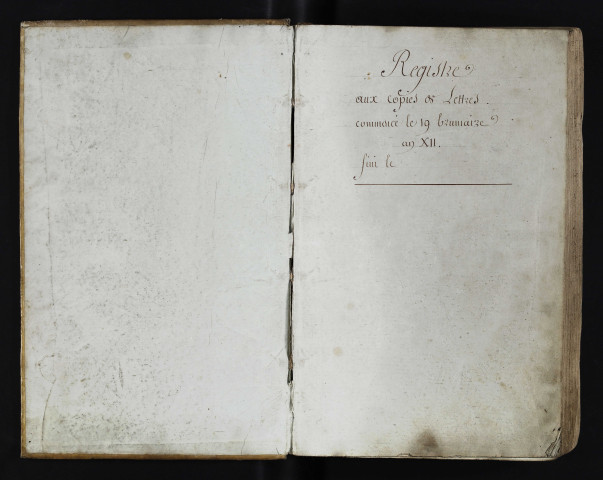 Registre
aux copies de Lettres.
commencé le 19 brumaire
an XII.
fini le